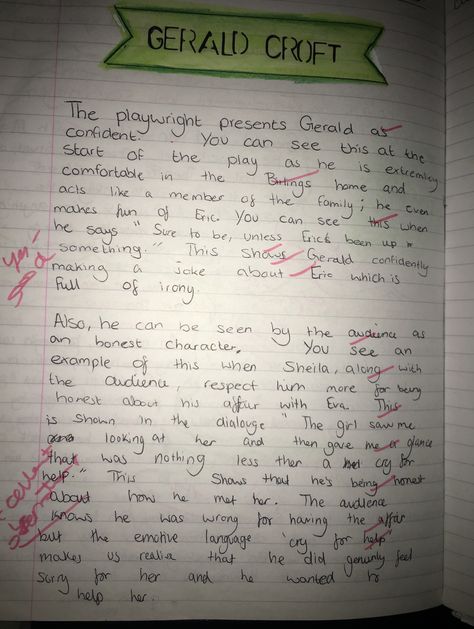 GERALD CROFT
The playwright presents Gerald as
confident. You can see this at the
start of the play as he is extremley
comfortable in the Birlings home and
acts like a member of the family; he even
makes fun of Eric. You can see this when
he says "Sure to be, unless Eric's been up to
something." This shows Gerald confidently
making a joke about Eric which is
full of irony.
Also, he can be seen by the audience as
an honest character. You see an
example of this when Sheila, along with
the audience, respect him more for being
honest about his affair with Eva. This
is shown in the dialouge "The girl saw me
looking at her and then gave me a glance
that was nothing less then a cry for
help." This shows that he's being honest
about how he met her. The audience
knows he was wrong for having the affair
but the emotive language 'cry for help"
makes us realise that he did genuinly feel
sorry for her and he wanted to
help her.